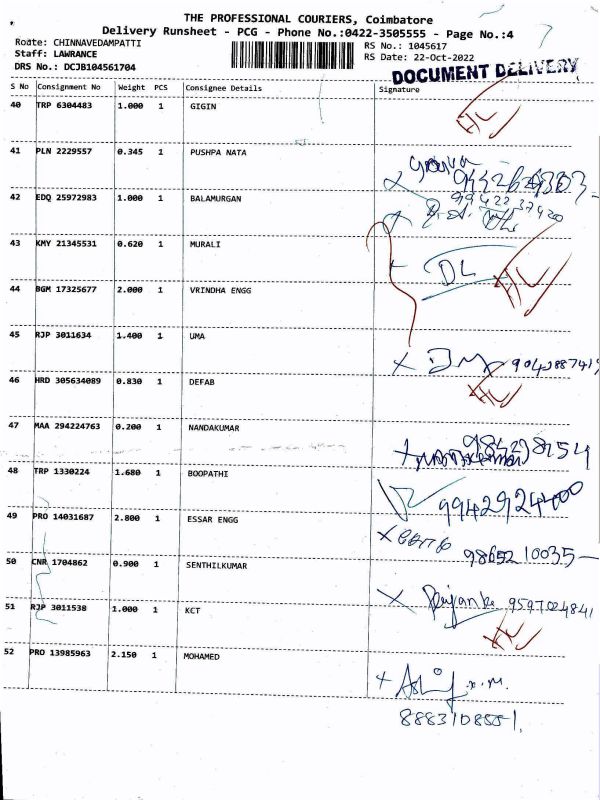 THE PROFESSIONAL COURIERS, Coimbatore
Delivery Runsheet - PCG - Phone No.:0422-3505555 - Page No.:4
Route: CHINNAVEDAMPATTI
RS No.: 1045617
Staff: LAWRANCE
RS Date: 22-Oct-2022
DRS No.: DCJB104561704
DOCUMENT DELIVERY
S No Consignment No Weight PCS Consignee Details Signature
40 TRP 6304483 1.000 1 GIGIN
41 PLN 2229557 0.345 1 PUSHPA NATA
42 EDQ 25972983 1.000 1 BALAMURGAN
43 KMY 21345531 0.620 1 MURALI
DL
44 BGM 17325677 2.000 1 VRINDHA ENGG
45 RJP 3011634 1.400 1 UMA
46 HRD 305634089 0.830 1 DEFAB
47 MAA 294224763 0.200 1 NANDAKUMAR
48 TRP 1330224 1.680 1 BOOPATHI
9942924400
49 PRO 14031687 2.800 1 ESSAR ENGG
9865210035
50 CNR 1704862 0.900 1 SENTHILKUMAR
9597024841
51 RJP 3011538 1.000 1 KCT
52 PRO 13985963 2.150 1 MOHAMED